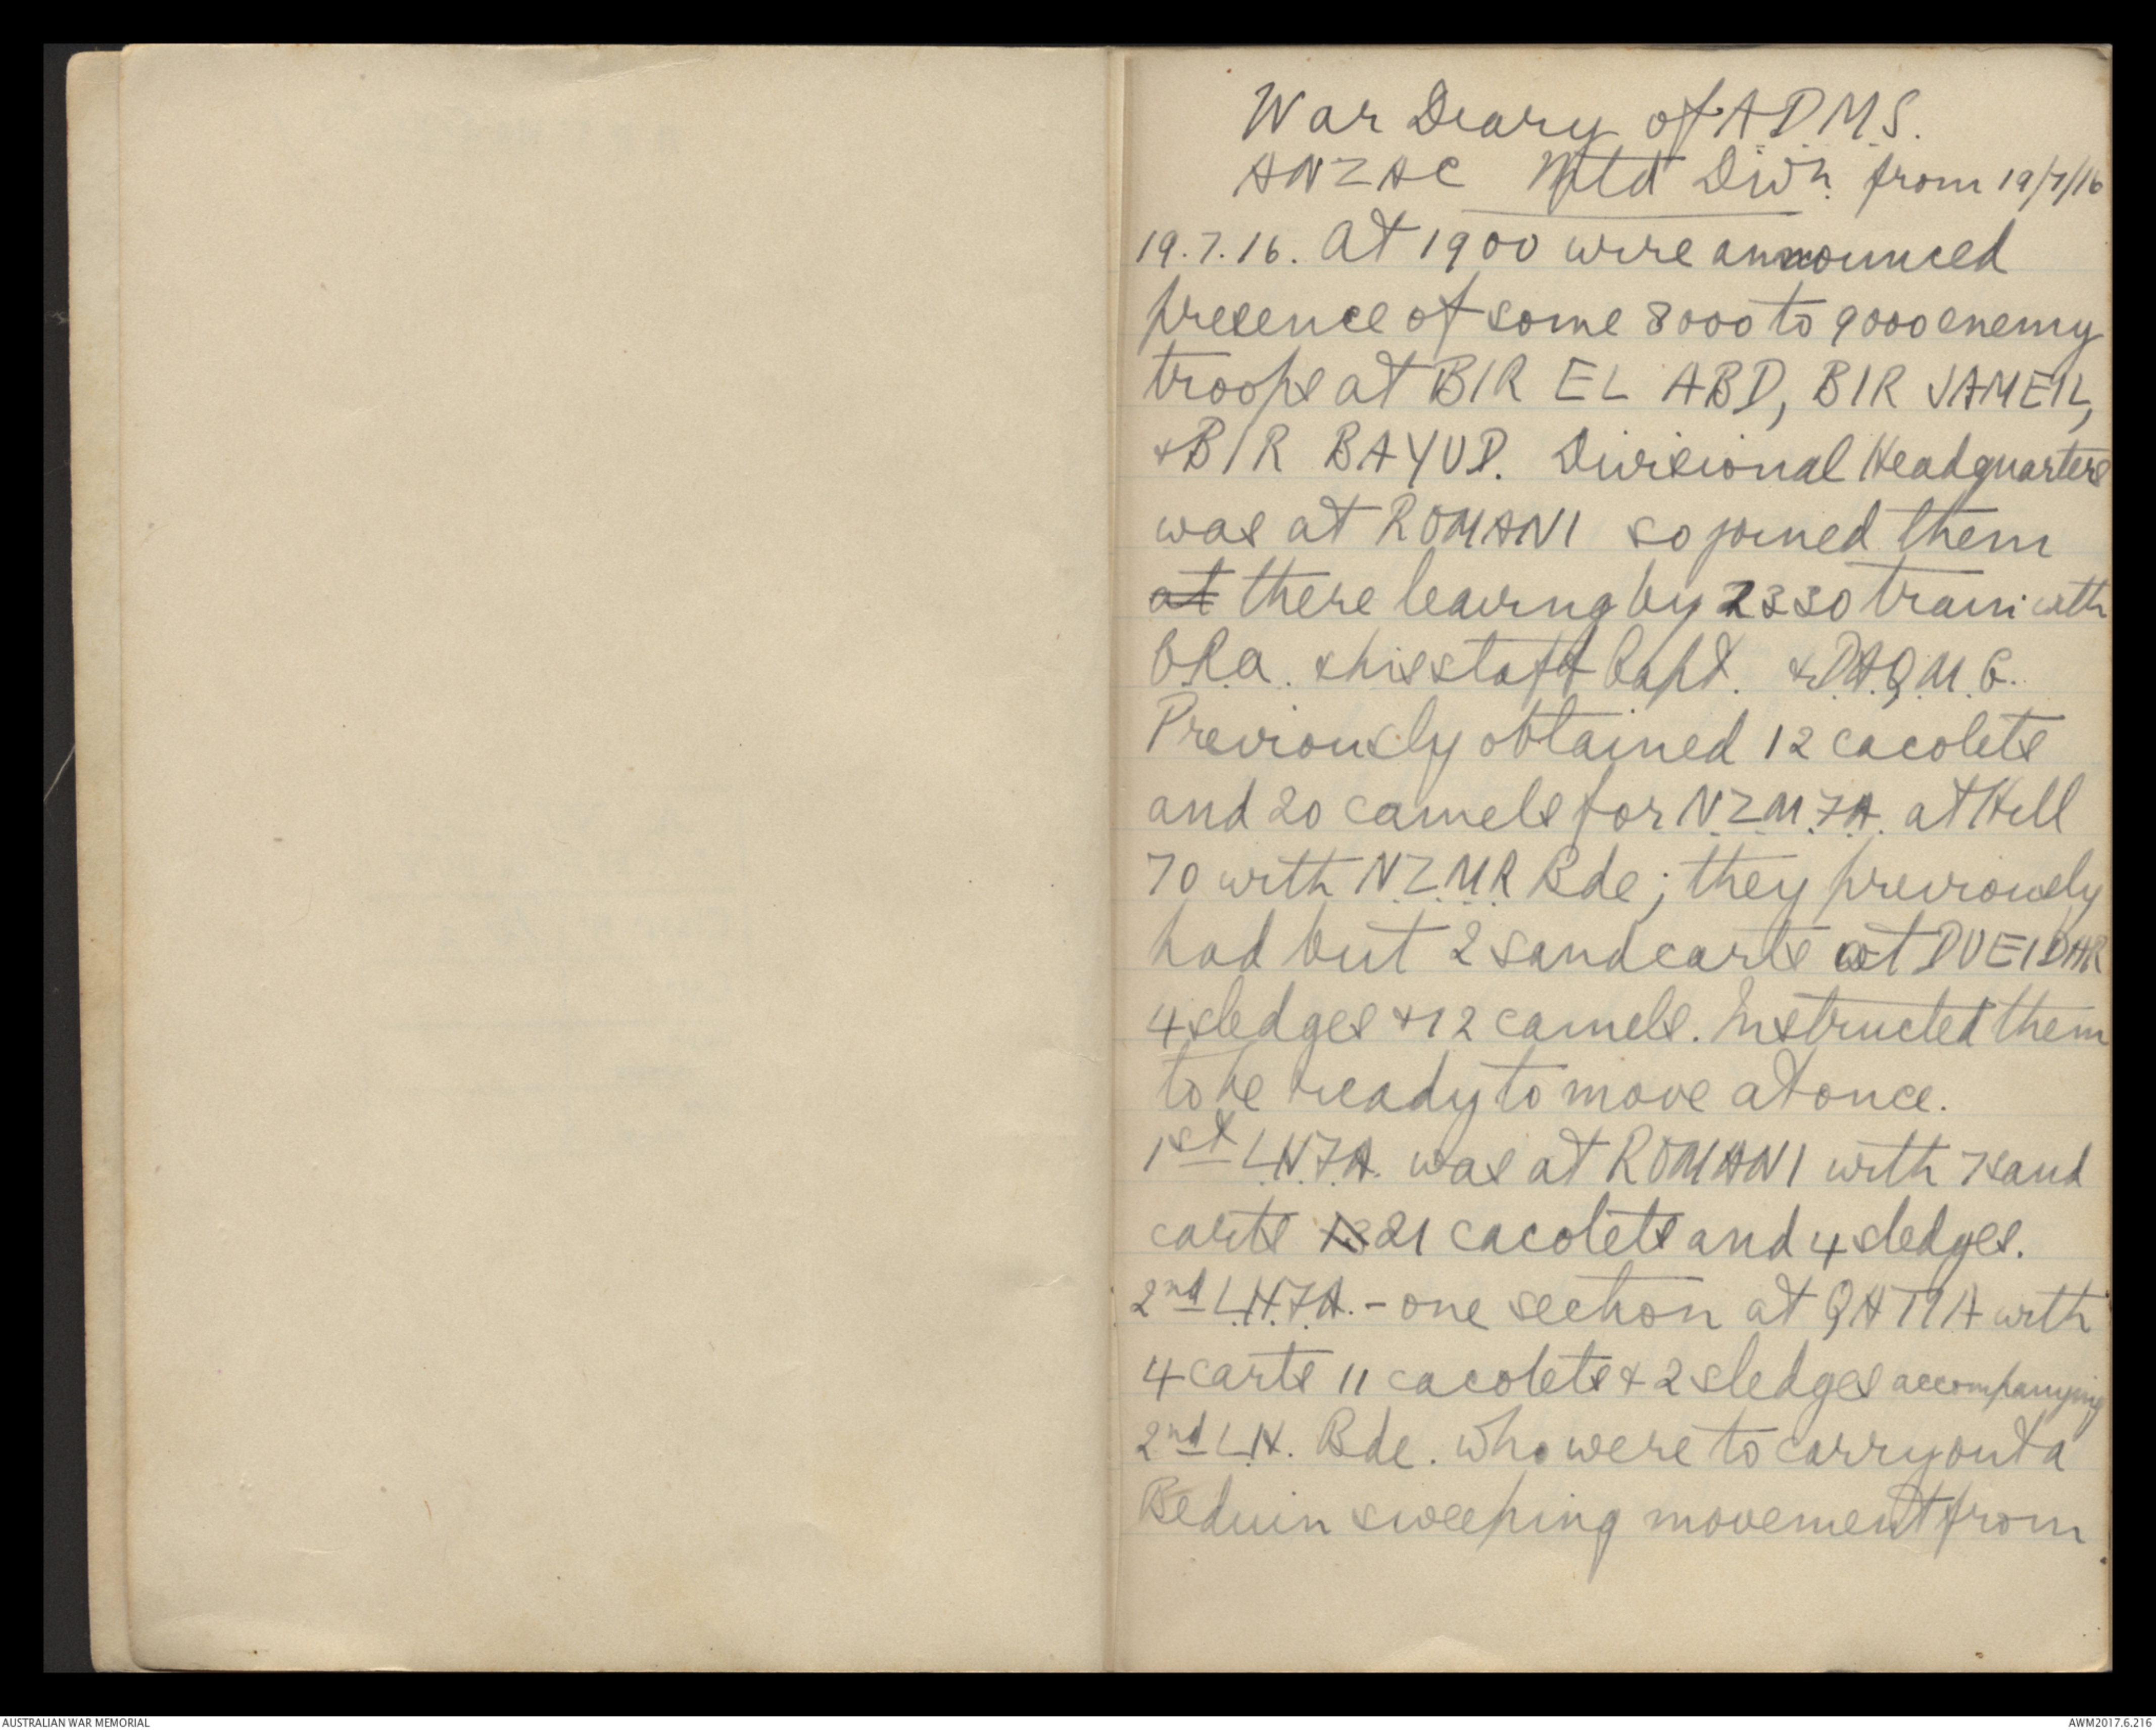 War Diary of A.D.M.S.
ANZAC Mtd Divn. from 19/7/16
19.7.16. At 1900 wire announced
presence of some 8000 to 9000 enemy
troops at BIR EL ABD, BIR JAMEIL,
& BIR BAYUD. Divisional Headquarters
was at ROMANI so joined them
at there leaving by 2330 train with
C.R.A. & his staff Capt. & D.A.Q.M.G.
Previously obtained 12 cacolets
and 20 camels for N.Z.M.F.A. at Hill
70 with N.Z.M.R. Bde; they previously
had but 2 sandcarts at DUEIDAR
4 sledges & 12 camels. Instructed them
to be ready to move at once.
1st L.H.F.A. was at ROMANI with 7 sand
carts 21 cacolets and 4 sledges.
2nd L.H.F.A. - one section at QATIA with
4 carts 11 cacolets & 2 sledges accompanying
2nd L.H. Bde. who were to carry out a
Beduin sweeping movement from
AUSTRALIAN WAR MEMORIAL
AWM2017.6.216